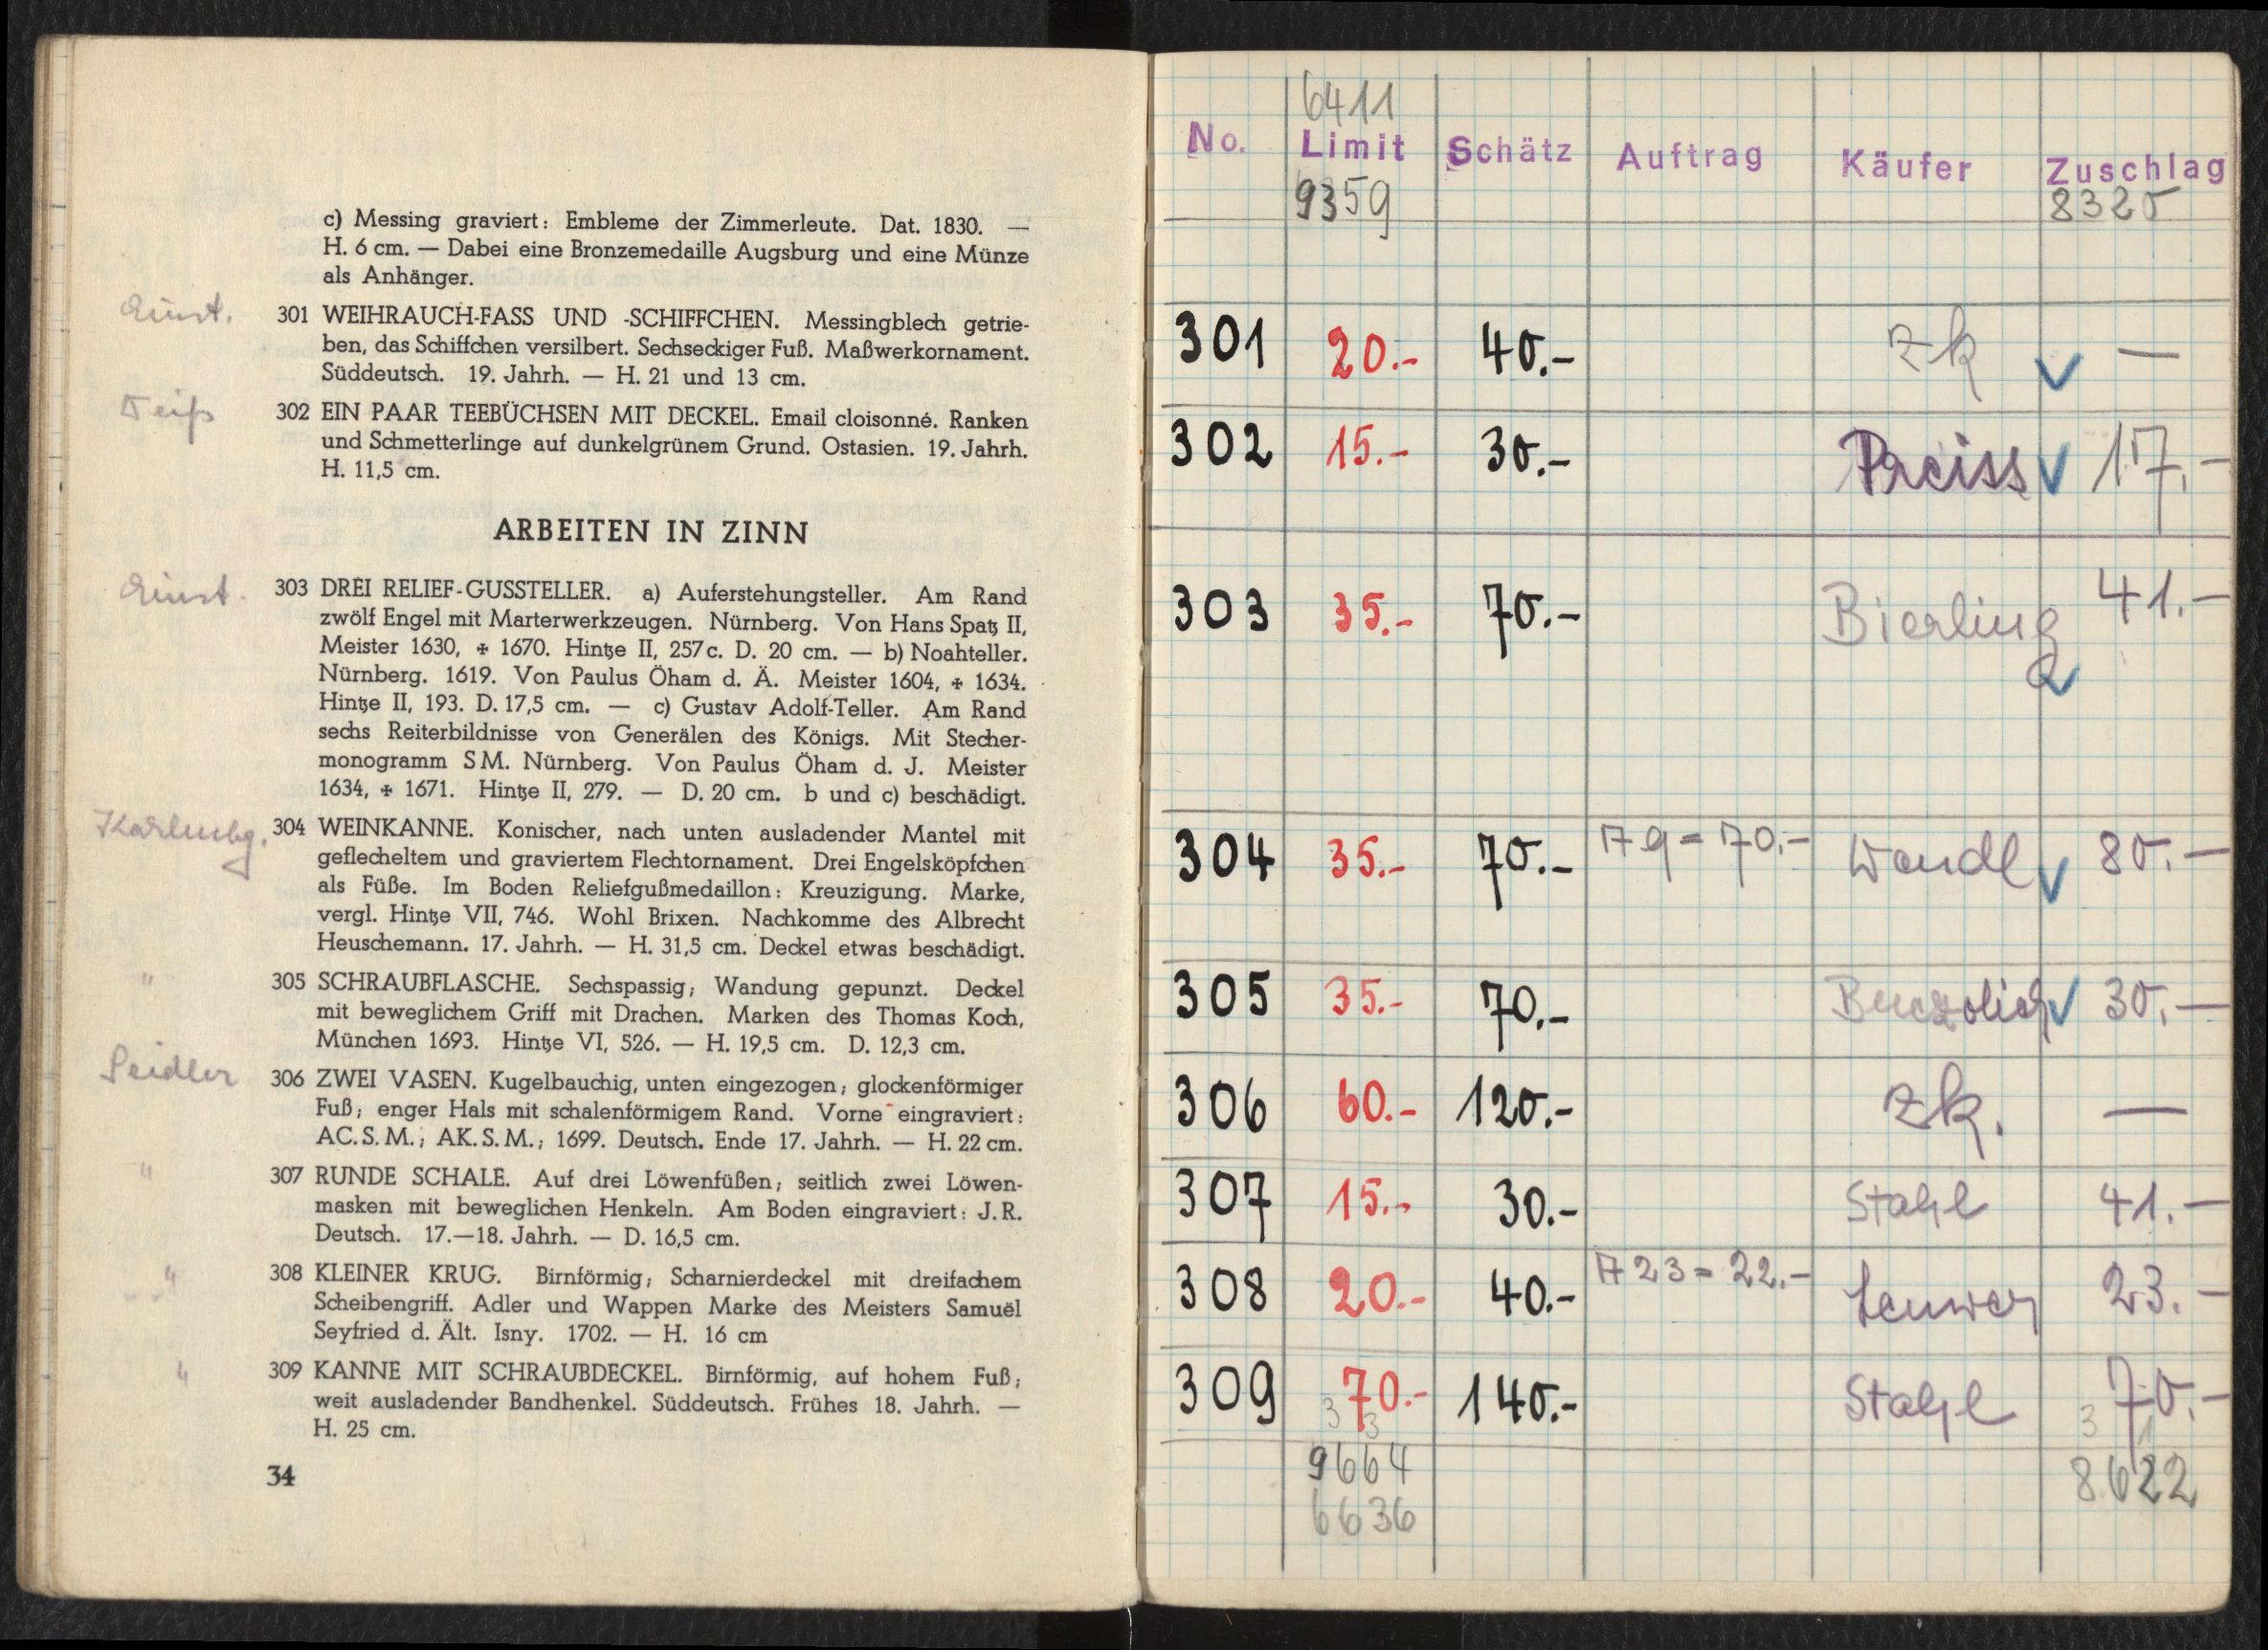 c) Messing graviert: Embleme der Zimmerleute. Dat. 1830. —
H. 6 cm. — Dabei eine Bronzemedaille Augsburg und eine Münze
als Anhänger.
301 WEIHRAUCH-FASS UND -SCHIFFCHEN. Messingblech getrie-
ben, das Schiffchen versilbert. Sechseckiger Fuß. Maßwerkornament.
Süddeutsch. 19. Jahrh. — H. 21 und 13 cm.
302 EIN PAAR TEEBÜCHSEN MIT DECKEL. Email cloisonné. Ranken
und Schmetterlinge auf dunkelgrünem Grund. Ostasien. 19. Jahrh.
H. 11,5 cm.
ARBEITEN IN ZINN
303 DREI RELIEF-GUSSTELLER. a) Auferstehungsteller. Am Rand
zwölf Engel mit Marterwerkzeugen. Nürnberg. Von Hans Spatz II,
Meister 1630, ✠ 1670. Hintze II, 257c. D. 20 cm. — b) Noahteller.
Nürnberg. 1619. Von Paulus Öham d. Ä. Meister 1604, ✠ 1634.
Hintze II, 193. D. 17,5 cm. — c) Gustav Adolf-Teller. Am Rand
sechs Reiterbildnisse von Generälen des Königs. Mit Stecher-
monogramm SM. Nürnberg. Von Paulus Öham d. J. Meister
1634, ✠ 1671. Hintze II, 279. — D. 20 cm. b und c) beschädigt.
304 WEINKANNE. Konischer, nach unten ausladender Mantel mit
geflecheltem und graviertem Flechtornament. Drei Engelsköpfchen
als Füße. Im Boden Reliefgußmedaillon: Kreuzigung. Marke,
vergl. Hintze VII, 746. Wohl Brixen. Nachkomme des Albrecht
Heuschemann. 17. Jahrh. — H. 31,5 cm. Deckel etwas beschädigt.
" 305 SCHRAUBFLASCHE. Sechspassig; Wandung gepunzt. Deckel
mit beweglichem Griff mit Drachen. Marken des Thomas Koch,
München 1693. Hintze VI, 526. — H. 19,5 cm. D. 12,3 cm.
Seidler 306 ZWEI VASEN. Kugelbauchig, unten eingezogen; glockenförmiger
Fuß; enger Hals mit schalenförmigem Rand. Vorne eingraviert:
AC.S.M.; AK.S.M.; 1699. Deutsch. Ende 17. Jahrh. — H. 22 cm.
" 307 RUNDE SCHALE. Auf drei Löwenfüßen; seitlich zwei Löwen-
masken mit beweglichen Henkeln. Am Boden eingraviert: J.R.
Deutsch. 17.—18. Jahrh. — D. 16,5 cm.
" 308 KLEINER KRUG. Birnförmig; Scharnierdeckel mit dreifachem
Scheibengriff. Adler und Wappen Marke des Meisters Samuël
Seyfried d. Ält. Isny. 1702. — H. 16 cm
" 309 KANNE MIT SCHRAUBDECKEL. Birnförmig, auf hohem Fuß;
weit ausladender Bandhenkel. Süddeutsch. Frühes 18. Jahrh. —
H. 25 cm.
34
6411
No. Limit Schätz Auftrag Käufer Zuschlag
9359 8320
301 20.- 40.- zk —
302 15.- 30.- Preiss 17.-
303 35.- 70.- Bierling 41.-
304 35.- 70.- 79 = 70.- Wandl 80.-
305 35.- 70.- 30.-
306 60.- 120.- zk. —
307 15.- 30.- Stahl 41.-
308 20.- 40.- 23 = 22.- 23.-
309 70.- 140.- Stahl 70.-
3 3 3
9664 8622
6636